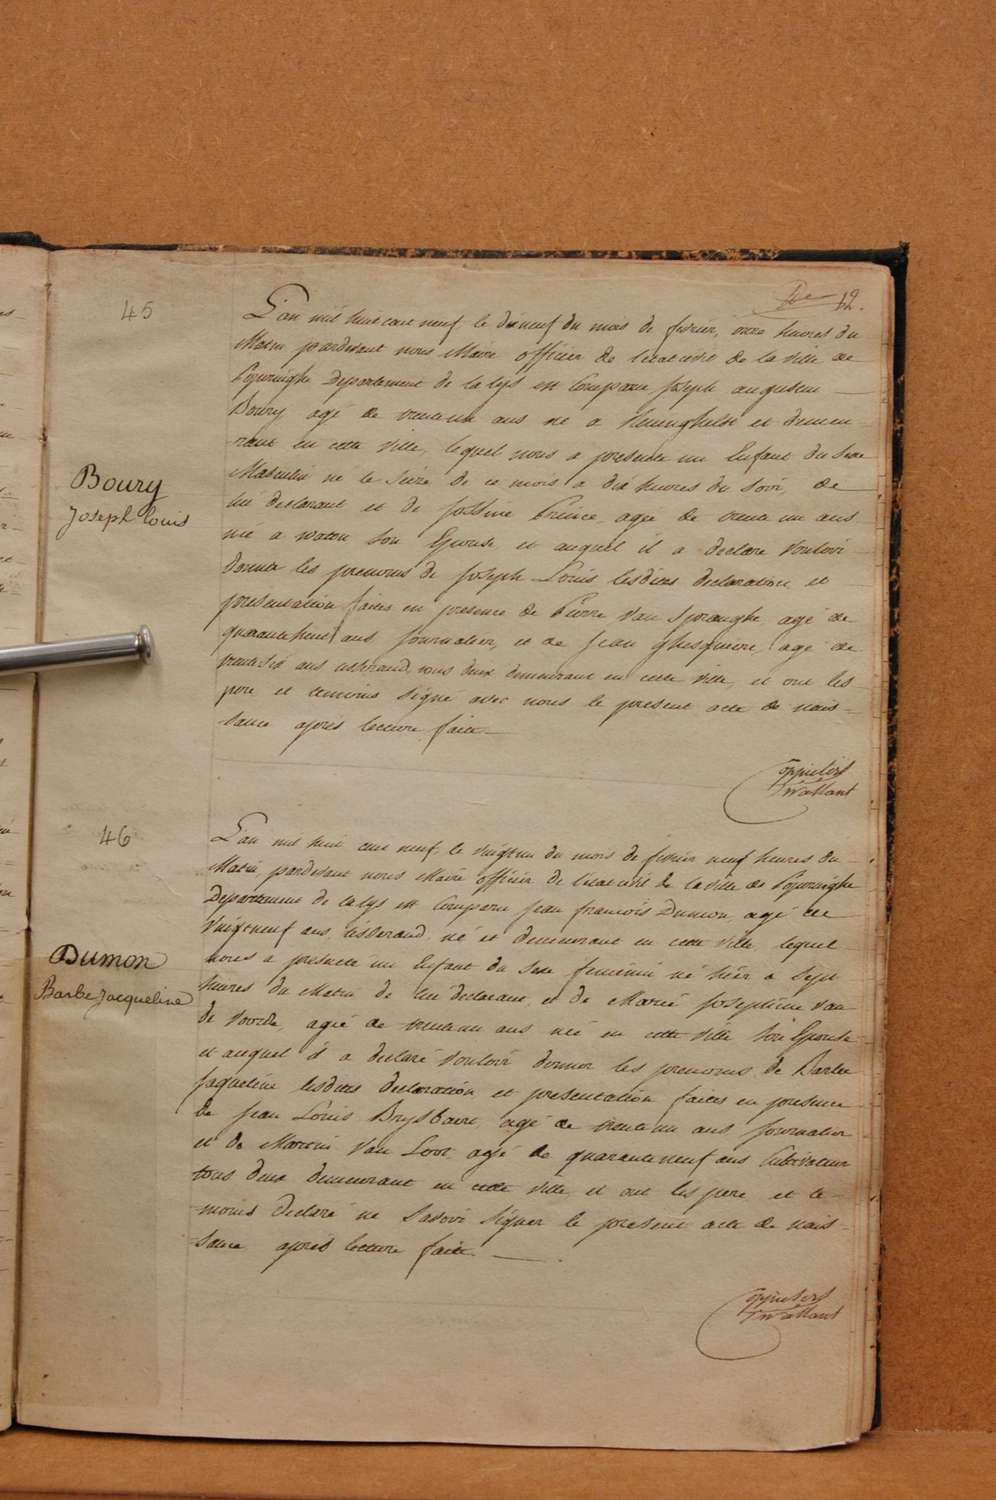 12.
45
L'an mil huit cent neuf, le dixneuf du mois de fevrier, onze heures du
Matin pardevant nous Maire officier de l'etat civil de la ville de
Poperinghe Departement de la Lys est Comparu Joseph augustin
Boury agé de trente un ans né a et demeu-
rant en cette ville, lequel nous a presenté un Enfant du Sexe
Masculin né le Seize de ce mois a dix heures du Soir, de
lui declarant et de Prince, agée de trente un ans
née a waton Son Epouse, et auquel il a declaré Vouloir
donner les prenoms de Joseph Louis lesdites declaration et
presentation faites en presence de Pierre Van Spranghe agé de
quarante huit ans Journalier, et de Jean Ghesquiere, agé de
ans tisserand, tous deux demeurant en cette ville, et ont les
pere et temoins Signé avec nous le present acte de nais-
sance après lecture faite.
Boury
Joseph louis
46
L'an mil huit cent neuf, le Vingt un du mois de fevrier neuf heures du
Matin pardevant nous Maire officier de l'etat civil de la ville de Poperinghe
Departement de la Lys est Comparu Jean francois Dumon, agé de
Vingt neuf ans, tisserand né et demeurant en cette Ville lequel
nous a presenté un Enfant du Sexe feminin né hier a Sept
heures du Matin de lui declarant, et de Marie Josephine Van
de Voorde, agée de trente un ans née en cette ville Son Epouse
et auquel il a declaré Vouloir donner les prenoms de Barbe
Jaqueline lesdites declaration et presentation faites en presence
de Jean Louis Brysbaert, agé de trente un ans Journalier
et de Martin Van Loot agé de quarante neuf ans Cultivateur
tous deux demeurant en cette Ville, et ont les pere et te-
moins declaré ne Savoir Signer le present acte de nais-
sance après lecture faite.
Dumon
Barbe Jacqueline